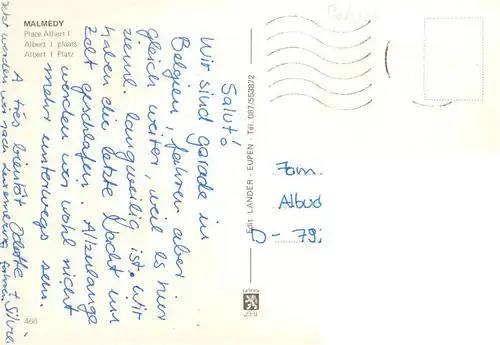 MALMEDY
Place Albert I
Albert I plaats
Albert I Platz
Salut!
Wir sind garade in
Belgien, fahren aber
gleich weiter, weil es hier
zieml. langweilig ist. Wir
haben die letzte Nacht im
Zelt geschlafen. Allzulange
werden wir wohl nicht
mehr unterwegs sein.
A très bientôt Odette + Silvia
Jetzt werden wir nach Luxemburg fahren
Edit. LANDER - EUPEN - Tél. 087/553872
Fam.
Albud
D - 79
466